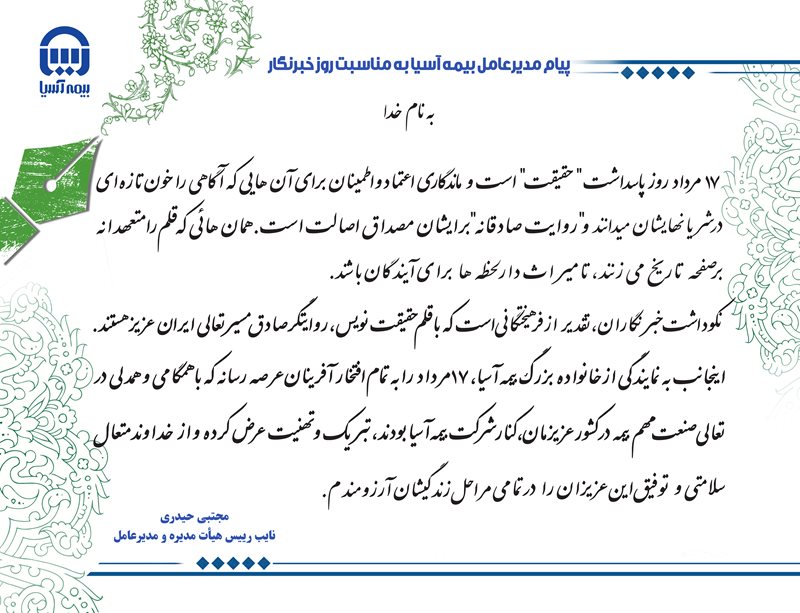 بیمه آسیا
پیام مدیرعامل بیمه آسیا به مناسبت روز خبرنگار
به نام خدا
۱۷ مرداد روز پاسداشت "حقیقت" است و ماندگاری اعتماد و اطمینان برای آن هایی که آگاهی را خون تازه ای
در شریانهایشان میدانند و "روایت صادقانه" برایشان مصداق اصالت است. همان هائی که قلم را متعهدانه
بر صفحه تاریخ می زنند، تا میراث دار لحظه ها برای آیندگان باشد.
نکوداشت خبرنگاران، تقدیر از فرهیختگانی است که با قلم حقیقت نویس، روایتگر صادق مسیر تعالی ایران عزیز هستند.
اینجانب به نمایندگی از خانواده بزرگ بیمه آسیا، ۱۷ مرداد را به تمام افتخار آفرینان عرصه رسانه که با همگامی و همدلی در
تعالی صنعت مهم بیمه در کشور عزیزمان، کنار شرکت بیمه آسیا بودند، تبریک و تهنیت عرض کرده و از خداوند متعال
سلامتی و توفیق این عزیزان را در تمامی مراحل زندگیشان آرزومندم.
مجتبی حیدری
نایب رییس هیأت مدیره و مدیرعامل